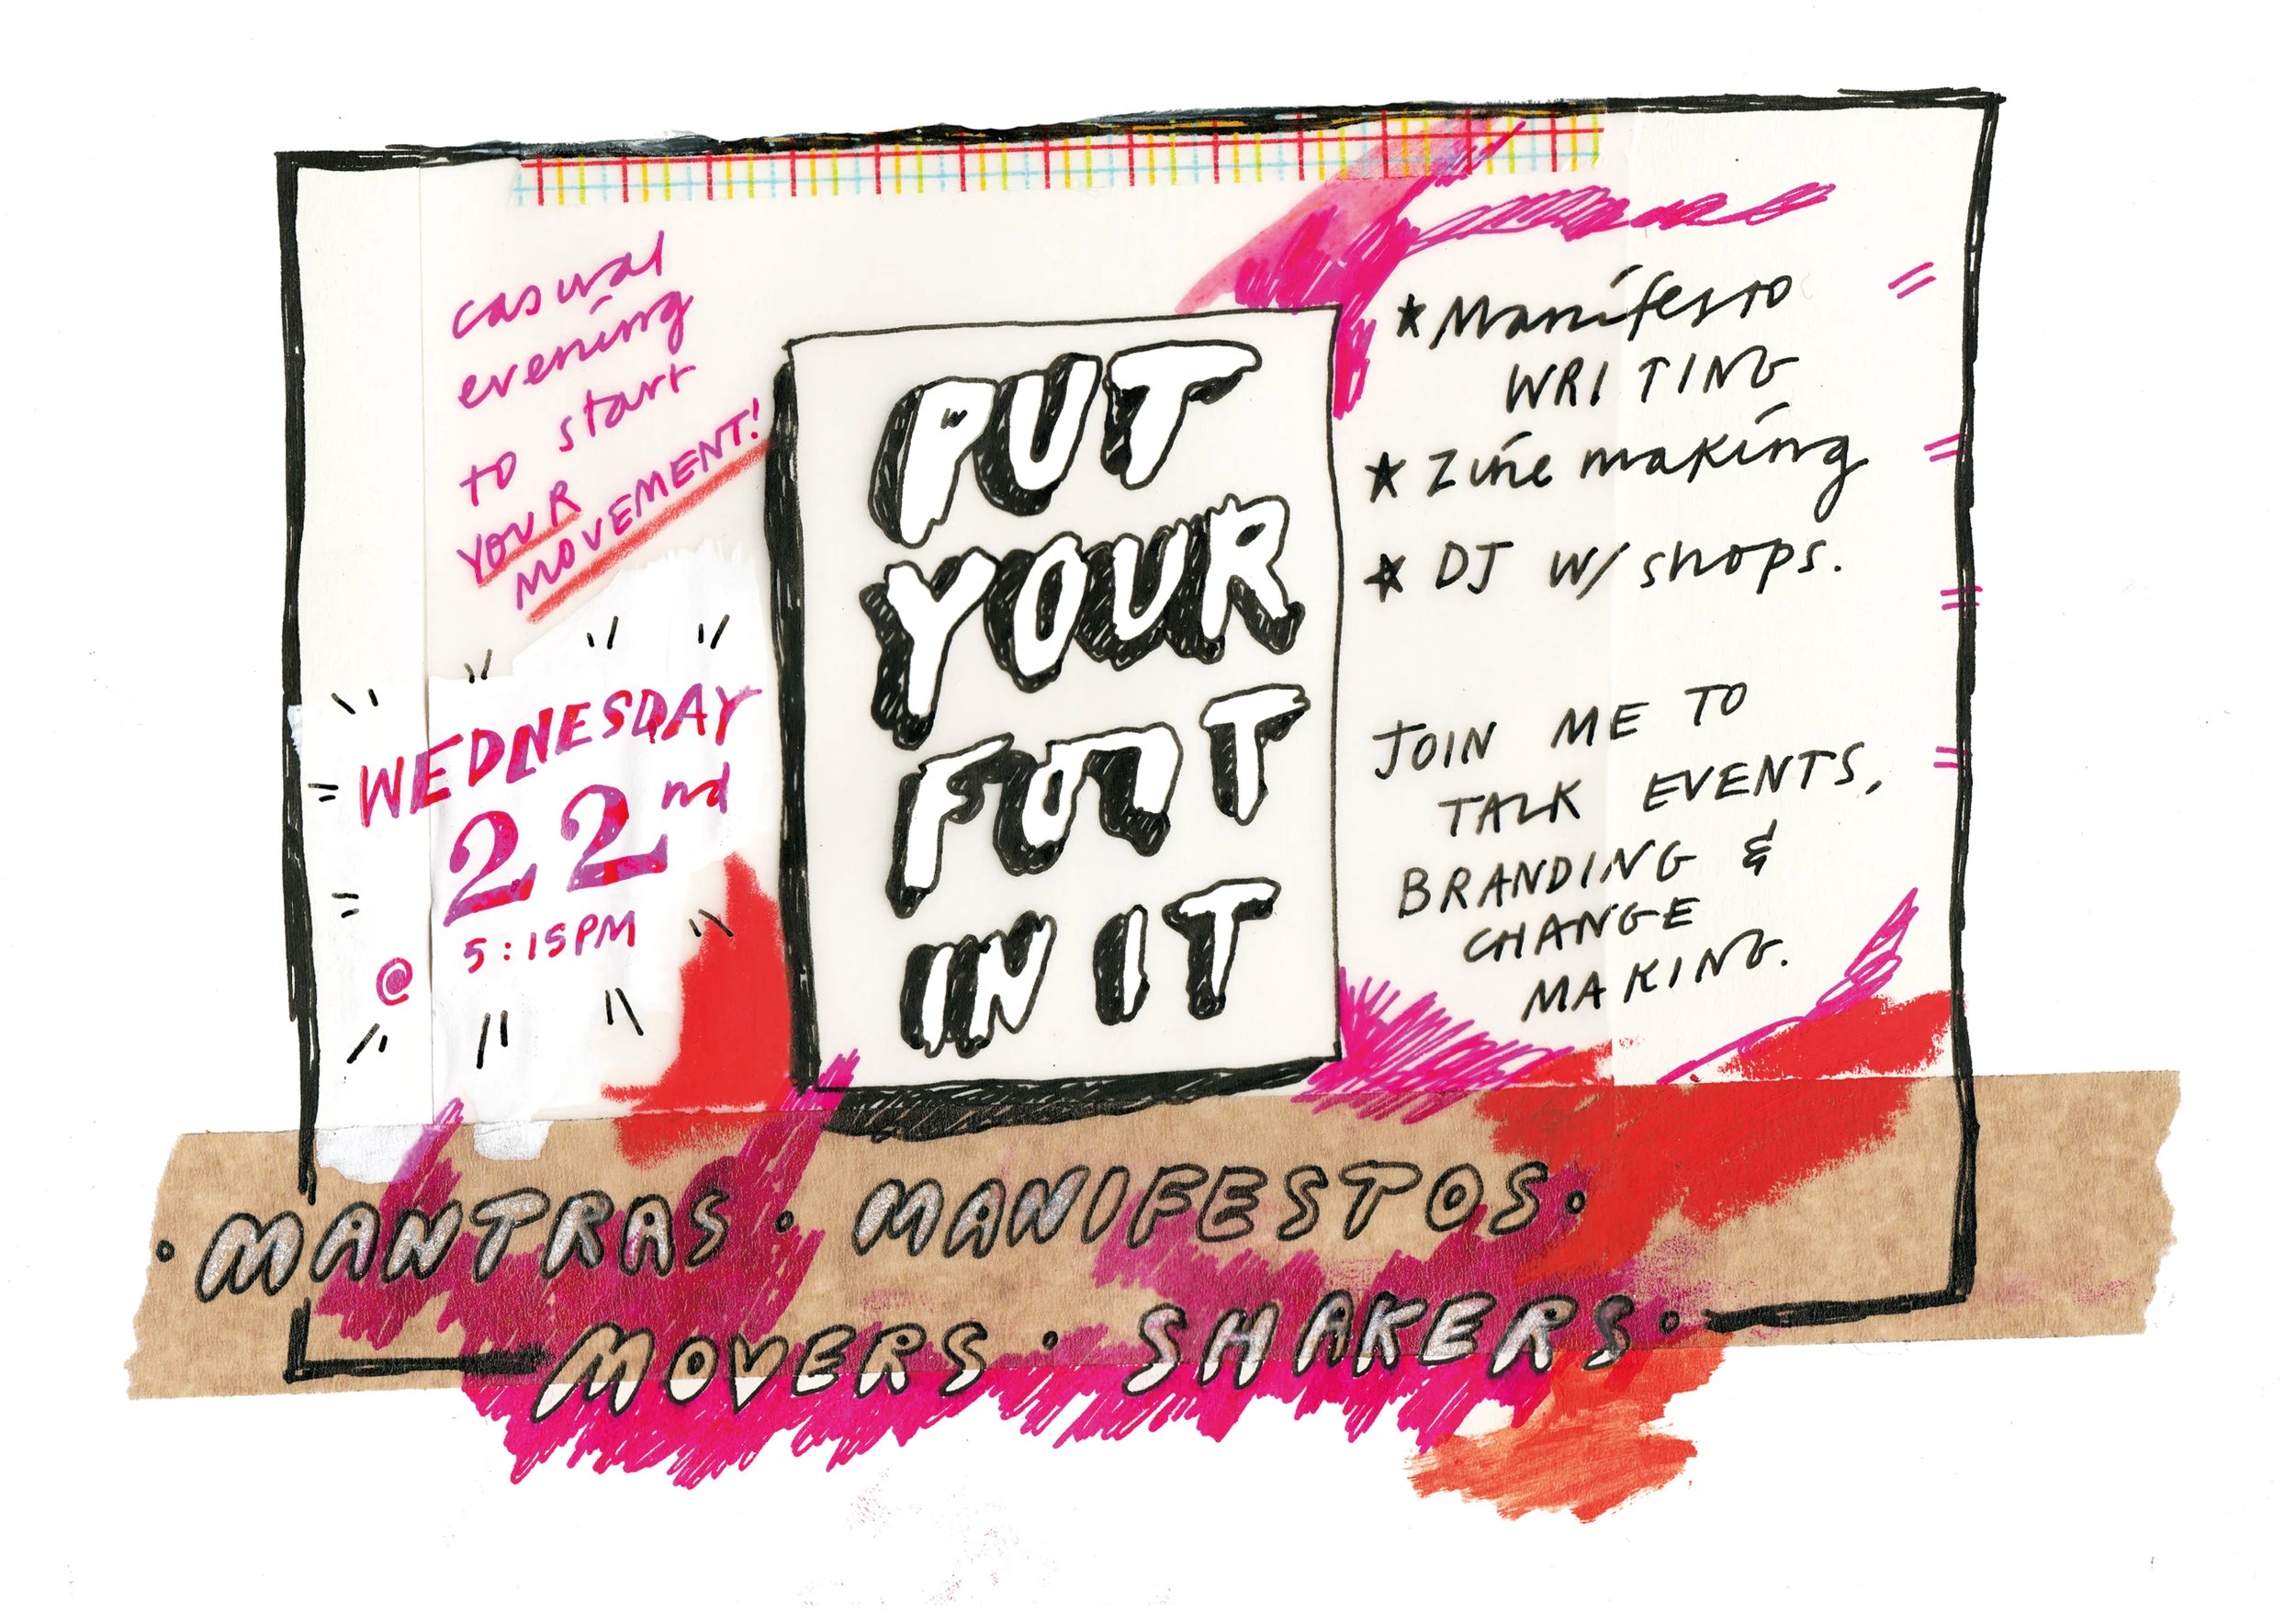 casual
evening
to start
YOUR
MOVEMENT!
WEDNESDAY
22nd
@ 5:15PM
PUT
YOUR
FONT
IN IT
★ Manifesto
WRITING
★ Zine making
★ DJ w/ shops.
JOIN ME TO
TALK EVENTS,
BRANDING &
CHANGE
MAKING.
• MANTRAS • MANIFESTOS •
MOVERS • SHAKERS •